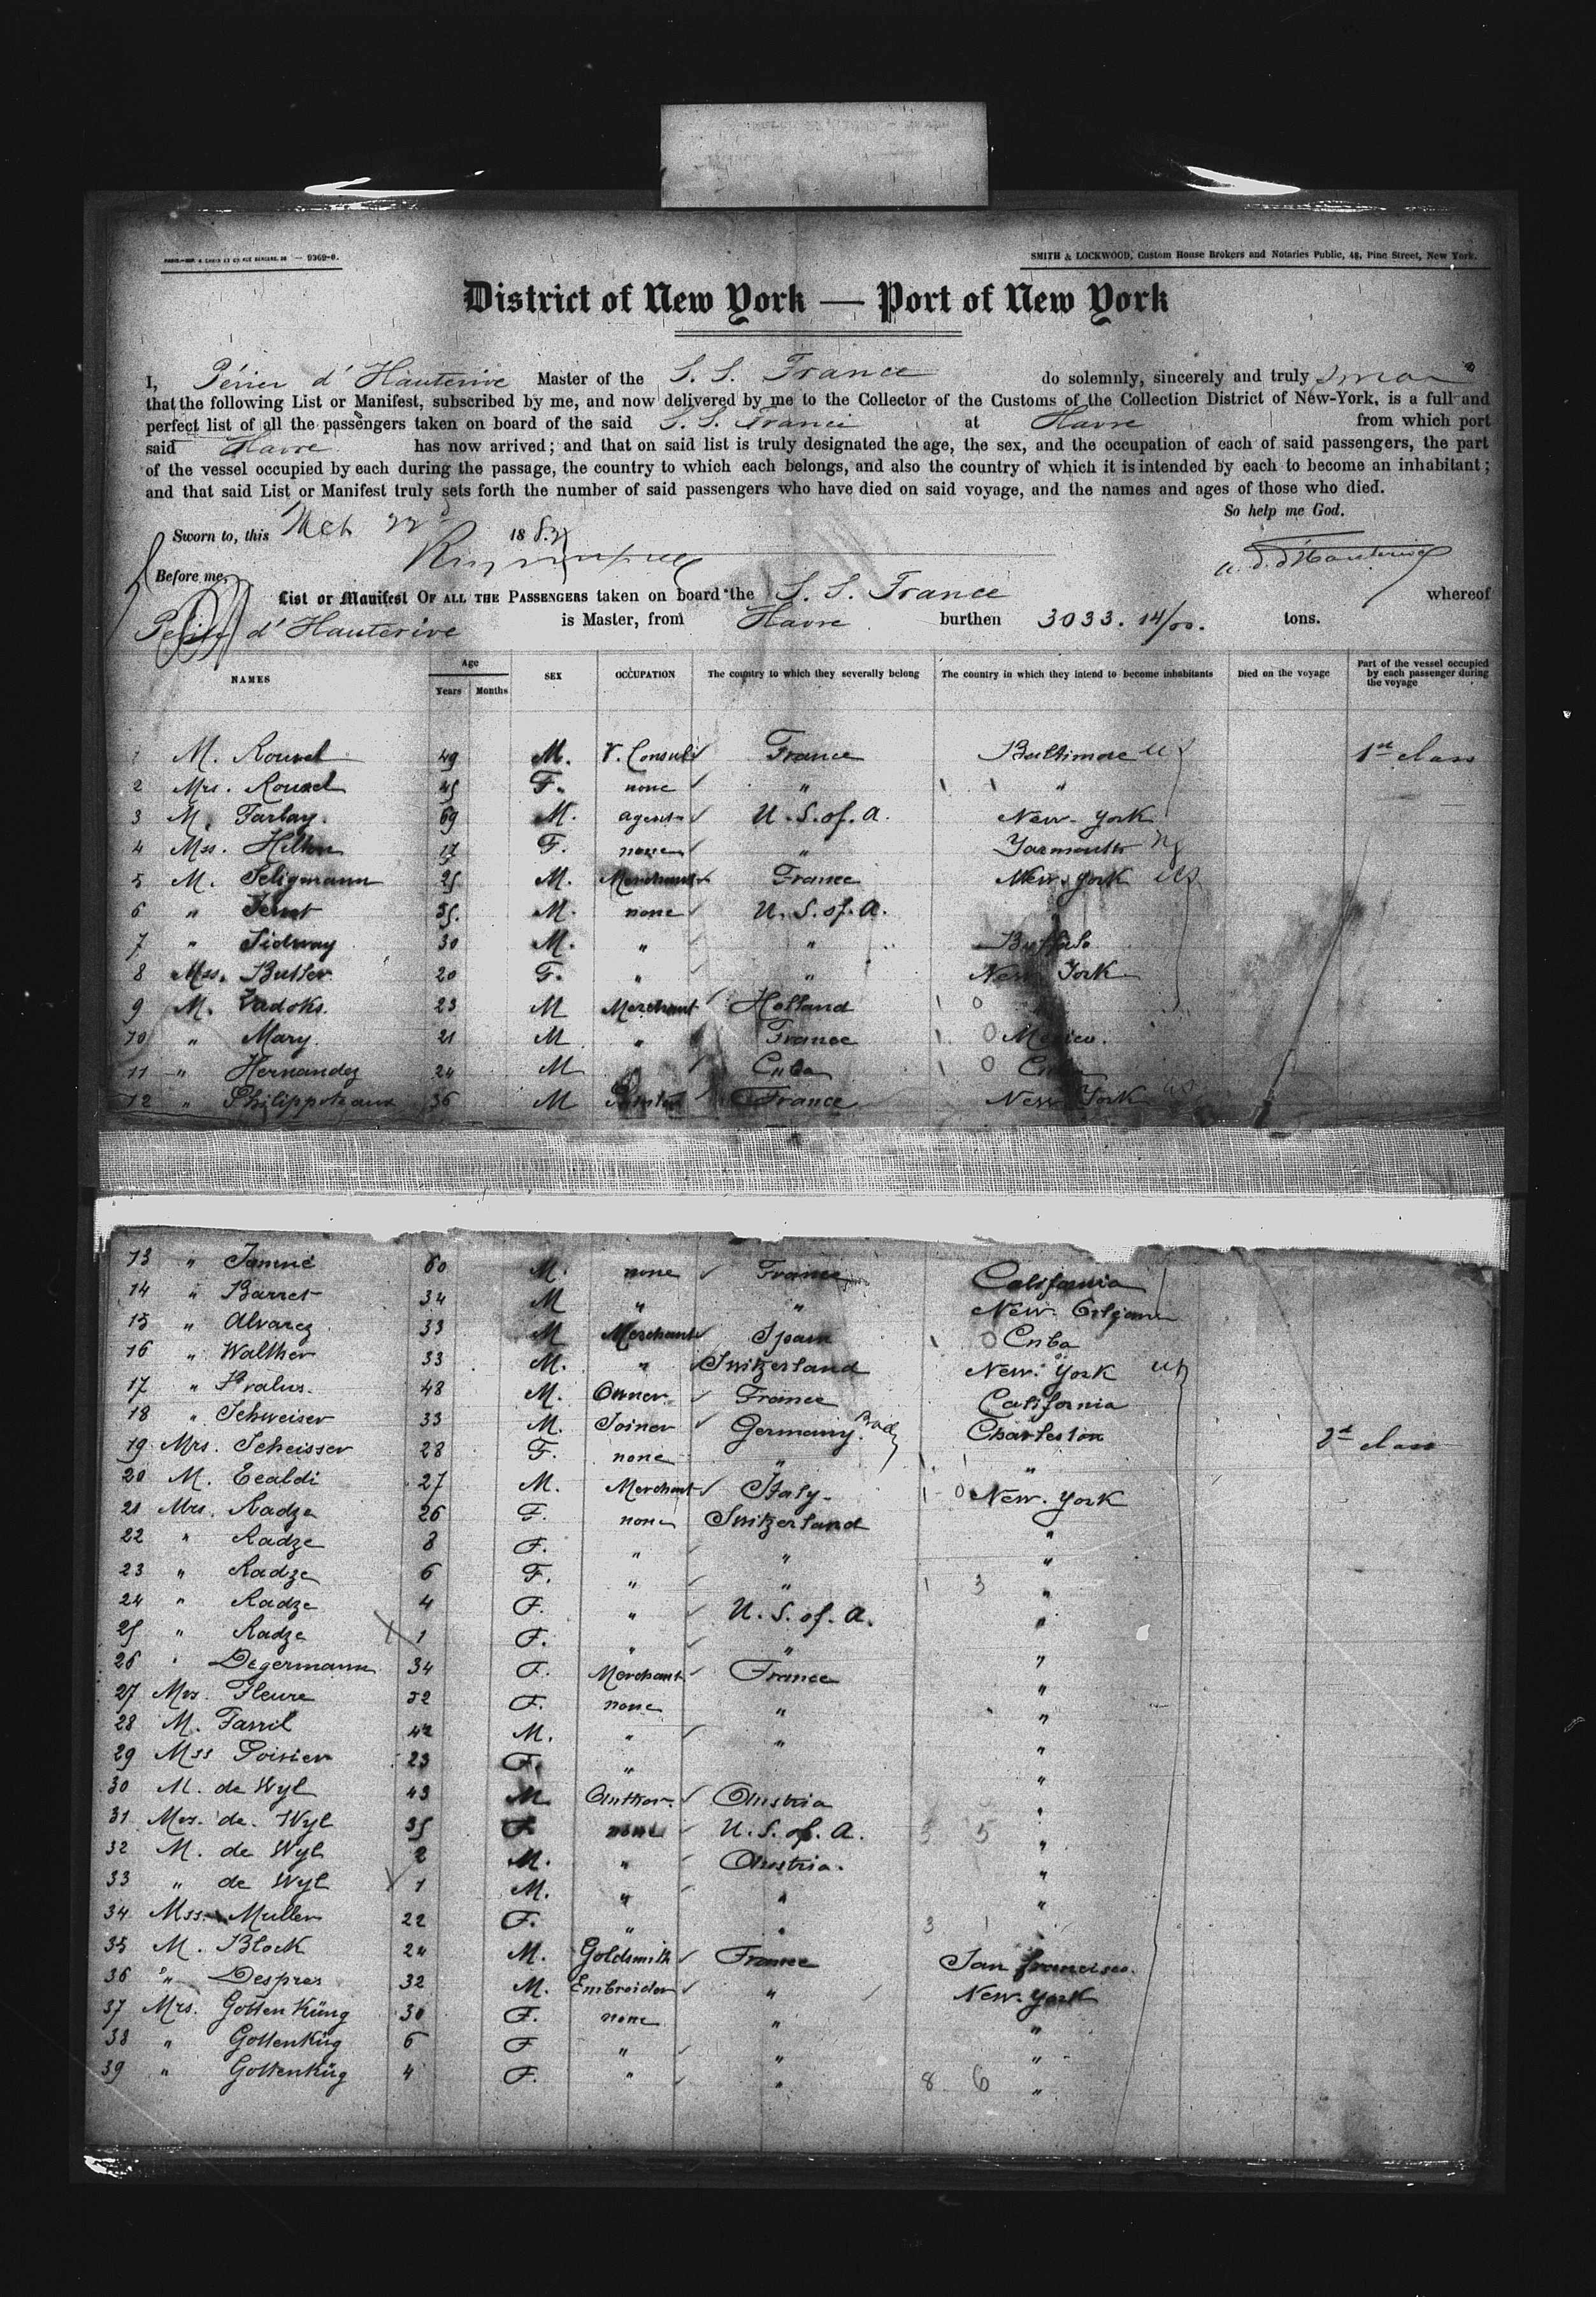 9369-0.
SMITH & LOCKWOOD, Custom House Brokers and Notaries Public, 48, Pine Street, New York.
District of New York — Port of New York
I, Périer d'Hauterive Master of the S. S. France do solemnly, sincerely and truly swear
that the following List or Manifest, subscribed by me, and now delivered by me to the Collector of the Customs of the Collection District of New-York, is a full and
perfect list of all the passengers taken on board of the said S. S. France at Havre from which port
said Havre has now arrived; and that on said list is truly designated the age, the sex, and the occupation of each of said passengers, the part
of the vessel occupied by each during the passage, the country to which each belongs, and also the country of which it is intended by each to become an inhabitant;
and that said List or Manifest truly sets forth the number of said passengers who have died on said voyage, and the names and ages of those who died.
So help me God.
Sworn to, this Mch 22d 188
Before me,
List or Manifest OF ALL THE PASSENGERS taken on board the S. S. France whereof
Périer d'Hauterive is Master, from Havre burthen 3033. 14/00. tons.
NAMES Age Years Months SEX OCCUPATION The country to which they severally belong The country in which they intend to become inhabitants Died on the voyage Part of the vessel occupied by each passenger during the voyage
1 M. Rouxel 49 M. V. Consul France Baltimore US 1st class
2 Mrs. Rouxel 45 F. none " "
3 M. Farlay. 69 M. agent U. S. of. A. New-York
4 Mss. 17 F. none " Yarmouth
5 M. Seligmann 25 M. Merchant France New-York US
6 " 35. M. none U. S. of. A. "
7 " Sidway 30 M. " " Buffalo
8 Mss. Butler 20 F. " " New York
9 M. Vadoks. 23 M Merchant Holland 1 0 "
10 " Mary. 21 M " France 1 0 Mexico.
11 " Hernandez 24 M " Cuba 1 0 Cuba
12 " Philippoteaux 36 M France New York US
13 " 60 M. none France California
14 " Barret 34 M " " New-Orleans
15 " Alvarez 33 M Merchant Spain 1 0 Cuba
16 " Walther 33 M. " Switzerland New-York US
17 " Pralus. 48 M. Owner France California
18 " Schweiser 33 M. Joiner Germany. Charleston
19 Mrs. Scheisser 28 F. none " 1 1 " 2d class
20 M. Ecaldi 27 M. Merchant Italy- 1 0 New-York
21 Mrs. Radze 26 F. none Switzerland "
22 " Radze 8 F. " " "
23 " Radze 6 F. " " 1 3 "
24 " Radze 4 F. " U. S. of. A. "
25 " Radze 1 F. " " "
26 " Degermann 34 F. Merchant France "
27 Mrs. Fleure 52 F. none " "
28 M. Farril 42 M. " " "
29 Mss Poirier 23 F. " "
30 M. de Wyl 43 M. Author. Austria "
31 Mrs. de. Wyl 35 F. none U. S. of. A. 3 5 "
32 M. de Wyl 2 M. " Austria. "
33 " de Wyl 1 M. " " "
34 Mss. Muller 22 F. " " 3 1
35 M. Block 24 M. Goldsmith France San francisco.
36 " Despres 32 M. Embroider " New-York
37 Mrs. Gotten Küng 30 F. none " "
38 " Gottenküg 6 F " " "
39 " Gottenküg 4 F. " " 8 6 "